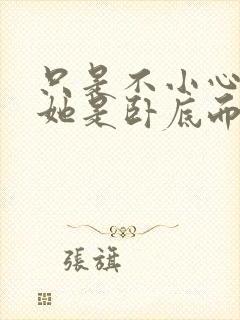 只是不小心
她是卧底而
張旗